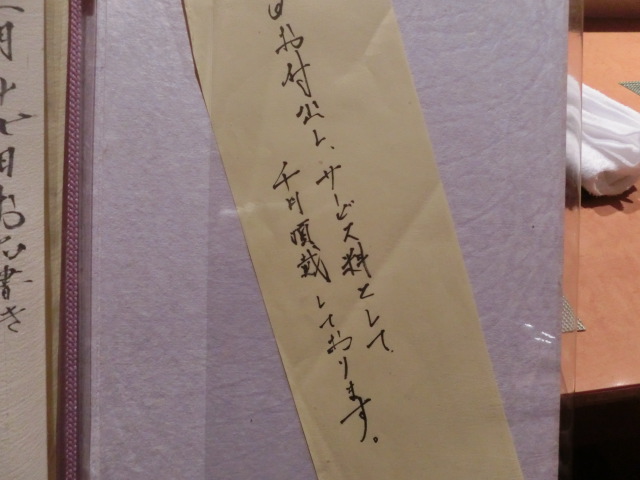 お付出し、サービス料として
千円頂戴しております。
月十七日お品書き